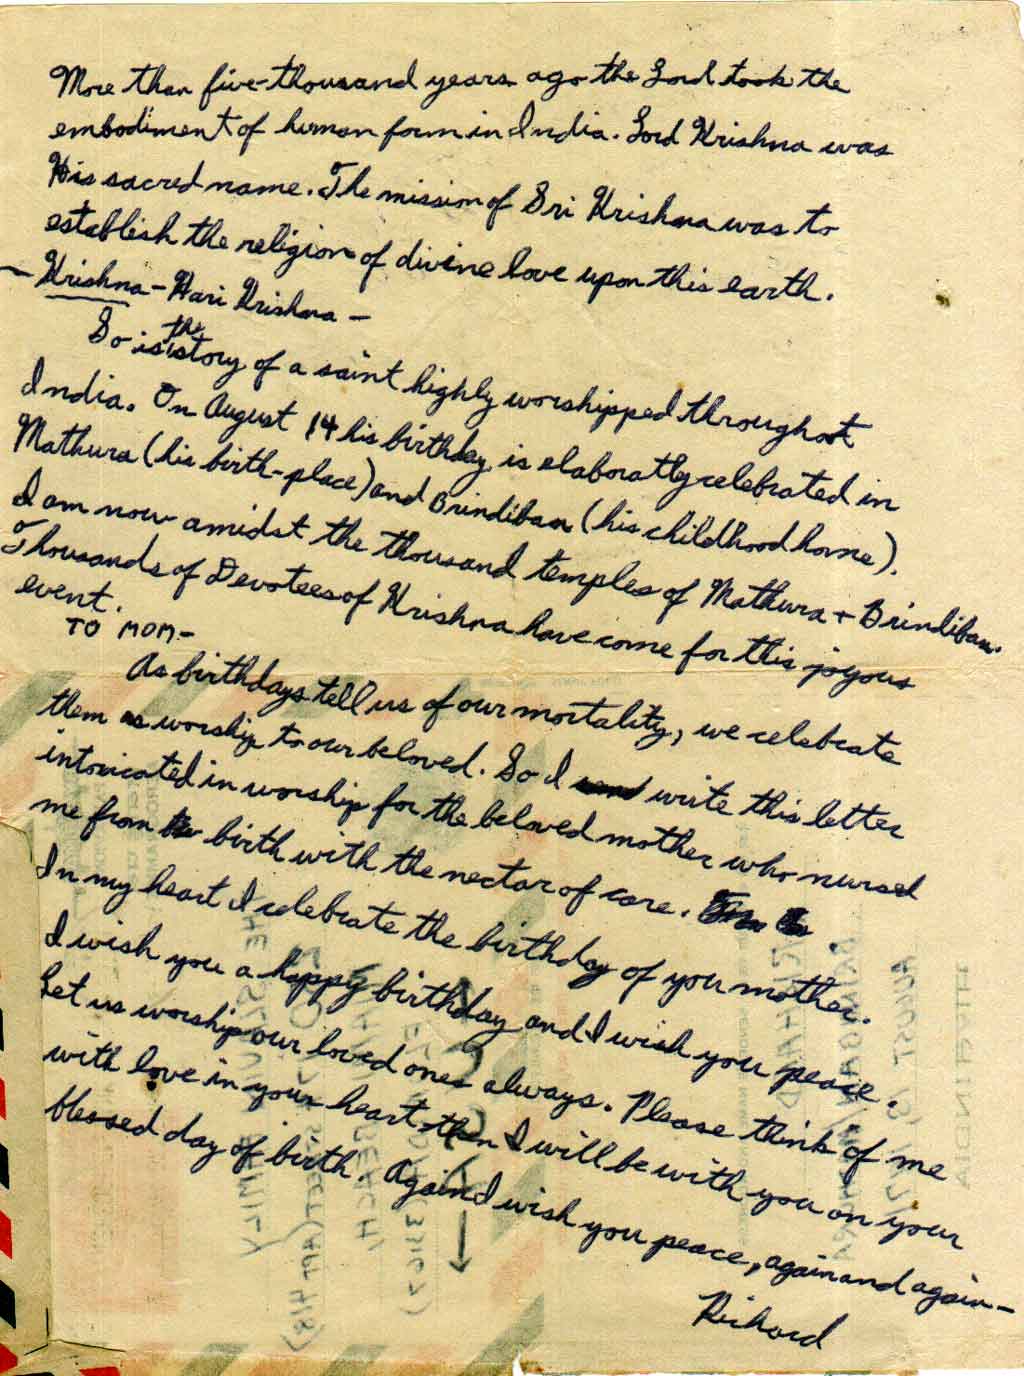 More than five-thousand years ago the Lord took the
embodiment of human form in India. Lord Krishna was
His sacred name. The mission of Sri Krishna was to
establish the religion of divine love upon this earth.
- Krishna - Hari Krishna -
So is the story of a saint highly worshipped throughout
India. On August 14 his birthday is elaboratly celebrated in
Mathura (his birth-place) and Brindiban (his childhood home).
I am now amidst the thousand temples of Mathura + Brindiban.
Thousands of Devotees of Krishna have come for this joyous
event.
TO MOM-
As birthdays tell us of our mortality, we celebrate
them as worship to our beloved. So I write this letter
intoxicated in worship for the beloved mother who nursed
me from birth with the nectar of care.
In my heart I celebrate the birthday of you mother.
I wish you a happy birthday and I wish you peace.
Let us worship our loved ones always. Please think of me
with love in your heart then I will be with you on your
blessed day of birth. Again I wish you peace, again and again-
Richard